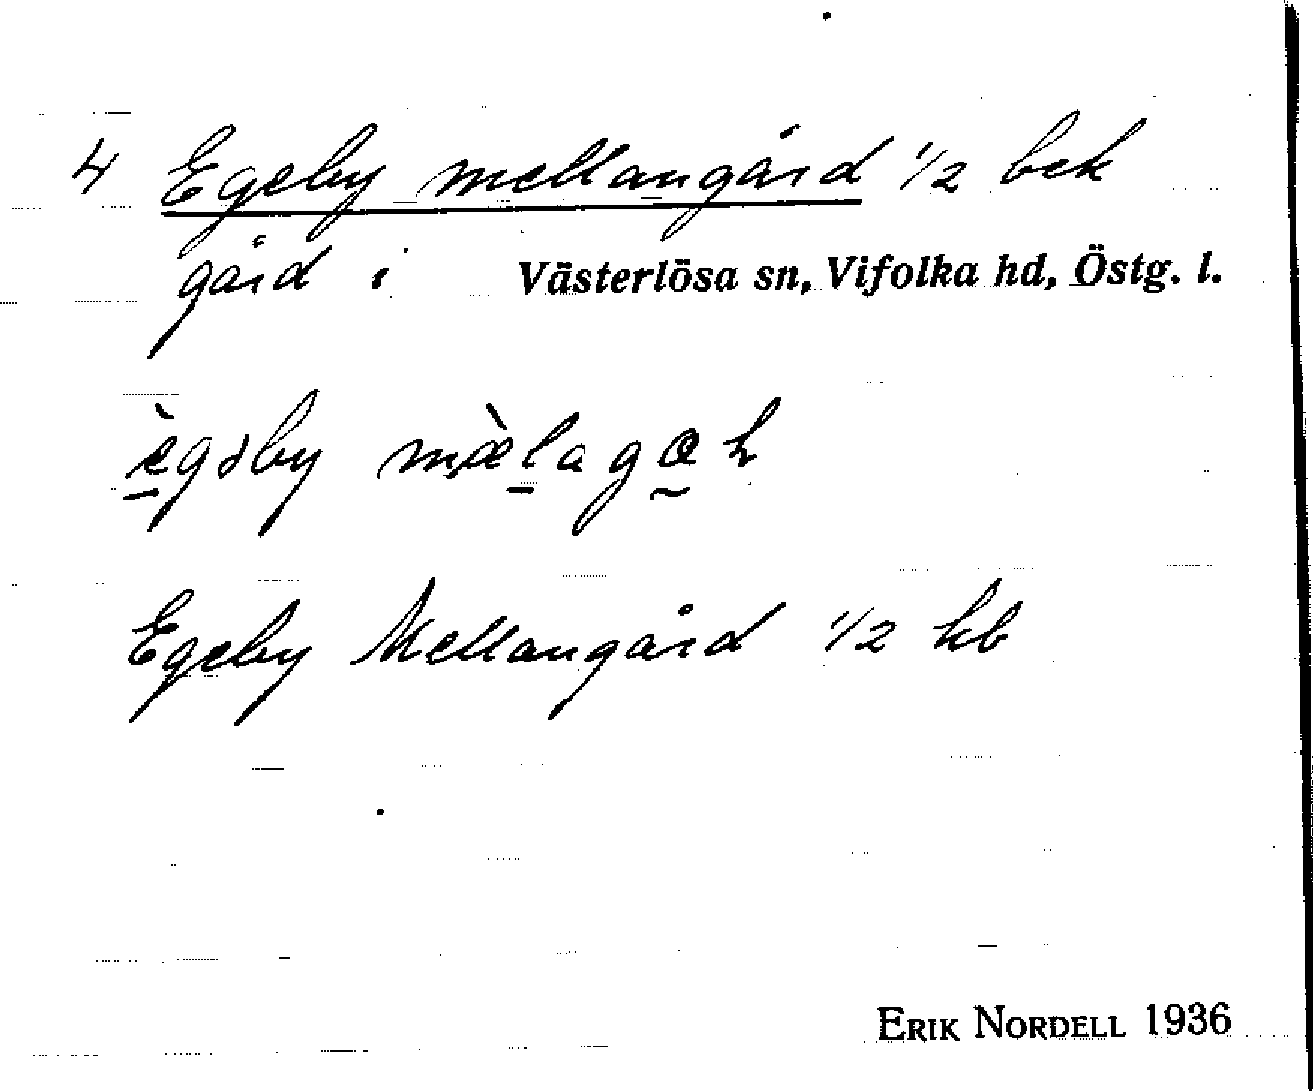 4 Egeby mellangård 1/2 bek
gård i Västerlösa sn, Vifolka hd, Östg. l.
ègəby mæ̀laga h
Egeby Mellangård 1/2 hb
ERIK NORDELL 1936